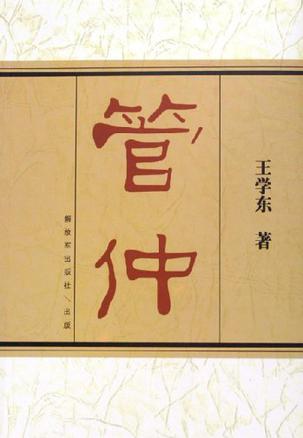 管仲
王学东 著
解放军出版社/出版